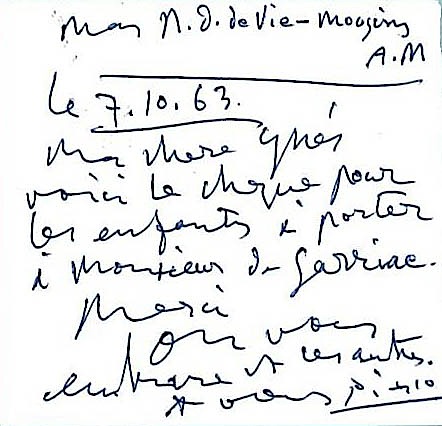 Mas N.D. de Vie - Mougins
A.M
le 7.10.63.
Ma chere Ynés
voici le cheque pour
les enfants à porter
à Monsieur de Sarriac.
Merci
On vous
embrasse et les autres.
et vous